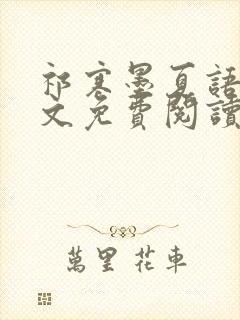 祁寒墨夏語
文免費閱讀
萬里花車